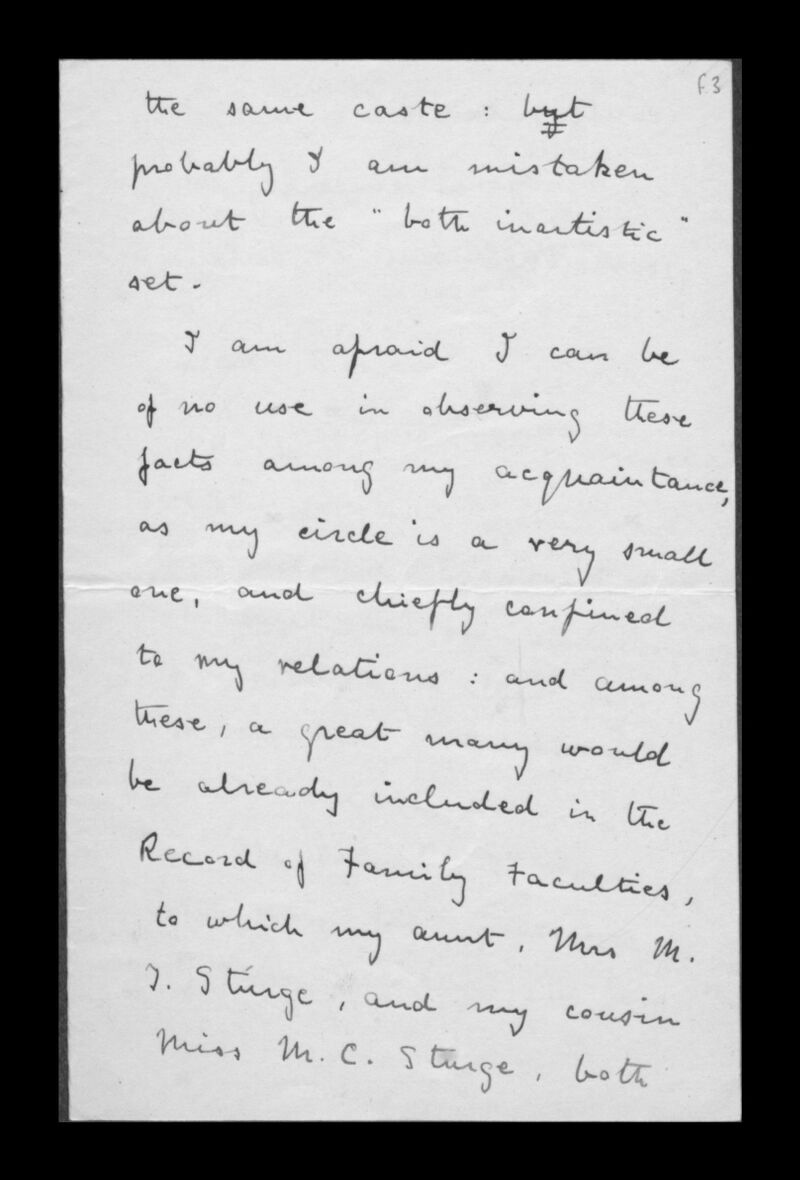 f3
the same caste : but
probably I am mistaken
about the "both inartistic"
set.
I am afraid I can be
of no use in observing these
facts among my acquaintance,
as my circle is a very small
one, and chiefly confined
to my relations : and among
these, a great many would
be already included in the
Record of Family Faculties,
to which my aunt, Mrs M.
J. Sturge, and my cousin
Miss M. C. Sturge, both